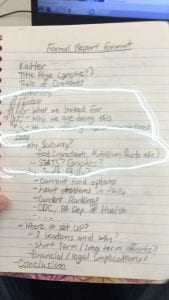 Formal Report Format
Letter
Title Page (graphic?)
Table of Contents
Intro
- What we looked for
- Why we are doing this
Why Subway?
- food ingredients, Nutrition facts etc.
- STATS? Graphics?
South Philly?
- Current food options
- heart problems in Philly
- Current Rankings
- CDC, PA Dep. of Health
- ...
- Where to set up?
- 3 locations and why?
- Short term / long term effects?
- financial / legal implications?
- Conclusion